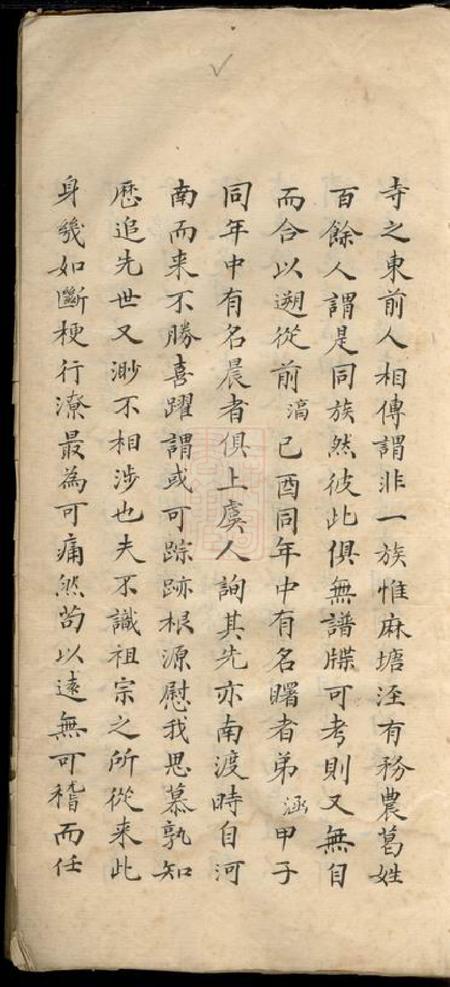 寺之東前人相傳謂非一族惟麻塘涇有務農葛姓
百餘人謂是同族然彼此俱無譜牒可考則又無自
而合以遡從前滈己酉同年中有名曙者弟涵甲子
同年中有名晨者俱上虞人詢其先亦南渡時自河
南而来不勝喜躍謂或可踪跡根源慰我思慕孰知
歷追先世又渺不相涉也夫不識祖宗之所從来此
身幾如斷梗行潦最為可痛然茍以遠無可稽而任